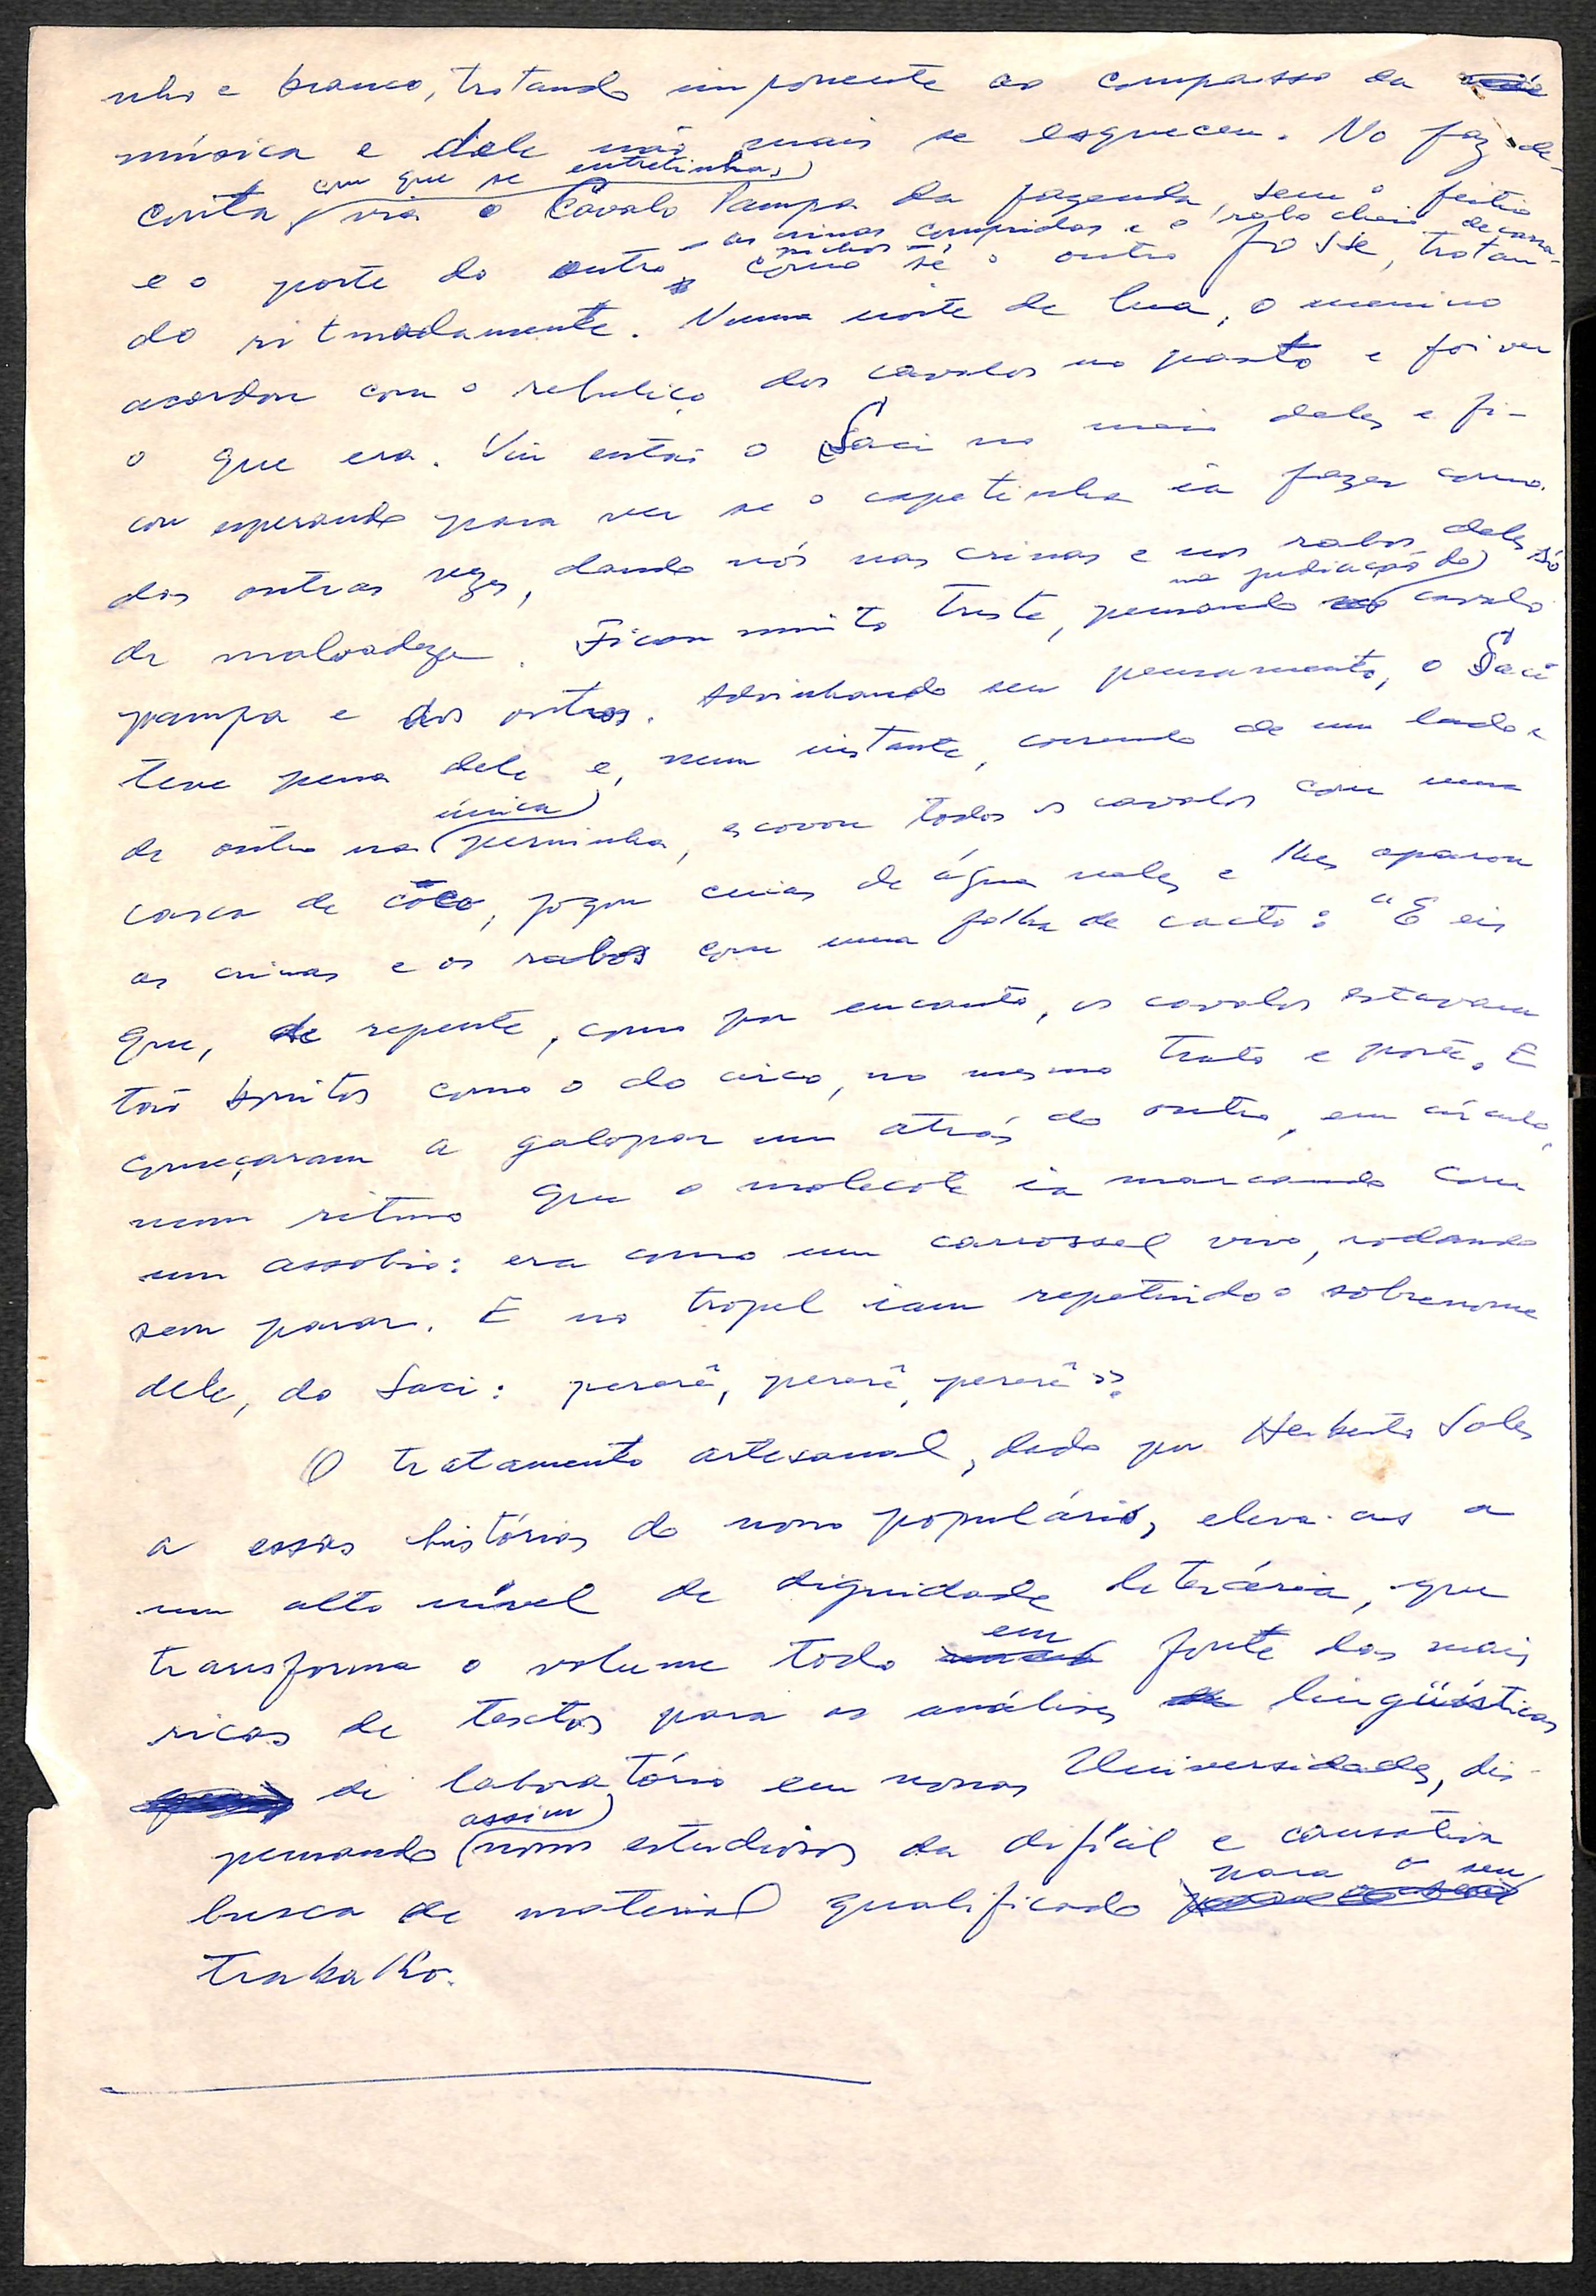 nho e branco, trotando imponente ao compasso da
música e dele não mais se esqueceu. No faz-de-
conta com que se entretinha, via o Cavalo Pampa da fazenda, sem o feitio
e o porte do outro - as crinas compridas e o rabo cheio de carra-
pichos - como se o outro fosse, trotan-
do ritmadamente. Numa noite de lua, o menino
acordou com o rebuliço dos cavalos no pasto e foi ver
o que era. Viu então o Saci no meio deles e fi-
cou esperando para ver se o capetinha ia fazer como
das outras vezes, dando nós nas crinas e nos rabos deles só
de malvadeza. Ficou muito triste, pensando na judiação do cavalo
pampa e dos outros. Adivinhando seu pensamento, o Saci
teve pena dele e, num instante, correndo de um lado e
de outro na única perninha, escovou todos os cavalos com uma
casca de côco, jogou cuias de água neles e lhes aparou
as crinas e os rabos com uma folha de cacto: "E eis
que, de repente, como por encanto, os cavalos estavam
tão bonitos como o do circo, no mesmo trato e porte. E
começaram a galopar um atrás do outro, em círculo,
num ritmo que o molecote ia marcando com
um assobio: era como um carrossel vivo, rodando
sem parar. E no tropel iam repetindo o sobrenome
dele, do Saci: pererê, pererê, pererê".
O tratamento artesanal, dado por Herberto Sales
a essas histórias do nosso populário, eleva-as a
um alto nível de dignidade literária, que
transforma o volume todo em fonte das mais
ricas de textos para as análises lingüísticas
de laboratório em nossas Universidades, dis-
pensando assim nossos estudiosos da difícil e cansativa
busca de material qualificado para o seu
trabalho.